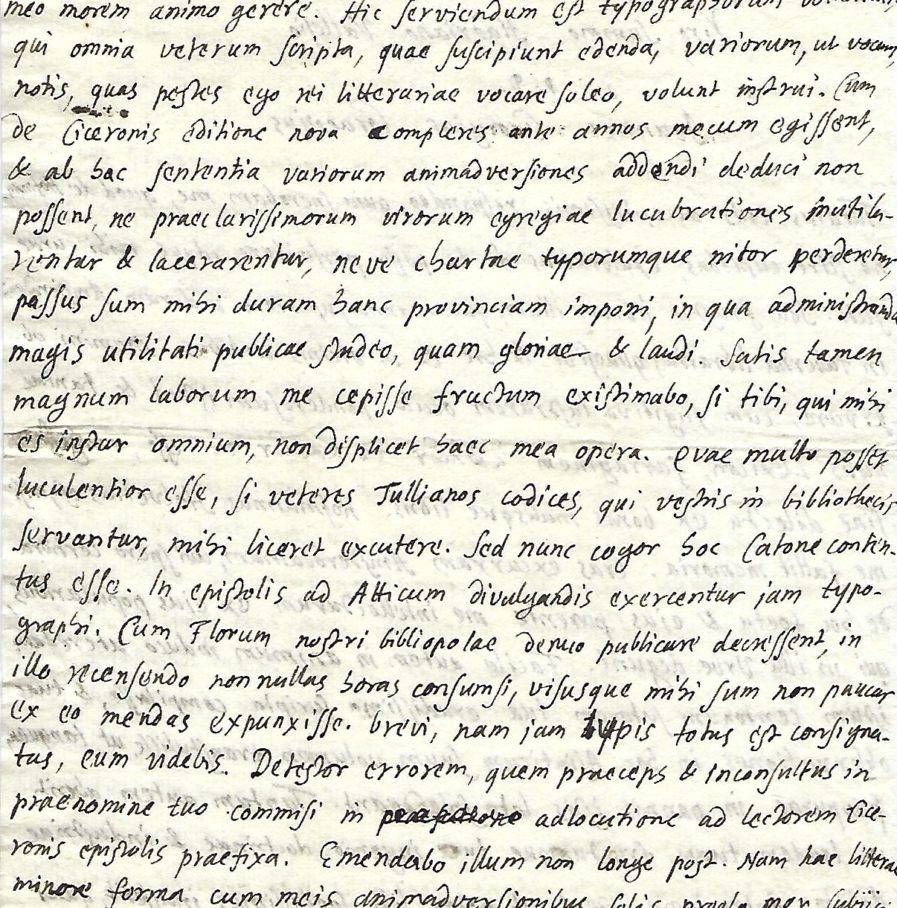 meo morem animo gerere. Hic serviendum est typographorum
qui omnia veterum scripta, quae suscipiunt edenda, variorum, ut vocant,
notis, quas pestes ego rei litterariae vocare soleo, volunt instrui. Cum
de Ciceronis editione nova complures ante annos mecum egissent,
& ab hac sententia variorum animadversiones addendi deduci non
possent, ne praeclarissimorum virorum egregiae lucubrationes mutila-
rentur & lacerarentur, neve chartae typorumque nitor perderetur,
passus sum mihi duram hanc provinciam imponi, in qua administranda
magis utilitati publicae studeo, quam gloriae & laudi. Satis tamen
magnum laborum me cepisse fructum existimabo, si tibi, qui mihi
es instar omnium, non displicet haec mea opera. Quae multo posset
luculentior esse, si veteres Tullianos codices, qui vestris in bibliothecis
servantur, mihi liceret excutere. Sed nunc cogor hoc Catone conten-
tus esse. In epistolis ad Atticum divulgandis exercentur jam typo-
graphi. Cum Florum nostri bibliopolae denuo publicare decressent, in
illo recensendo nonnullas horas consumsi, visusque mihi sum non paucas
ex eo mendas expunxisse. Brevi, nam jam typis totus est consigna-
tus, eum videbis. Detestor errorem, quem praeceps & inconsultus in
praenomine tuo commisi in praefatione adlocutione ad lectorem Cice-
ronis epistolis praefixa. Emendabo illum non longe post. Nam hae litterae
minore forma cum meis animadversionibus solis praelo mox